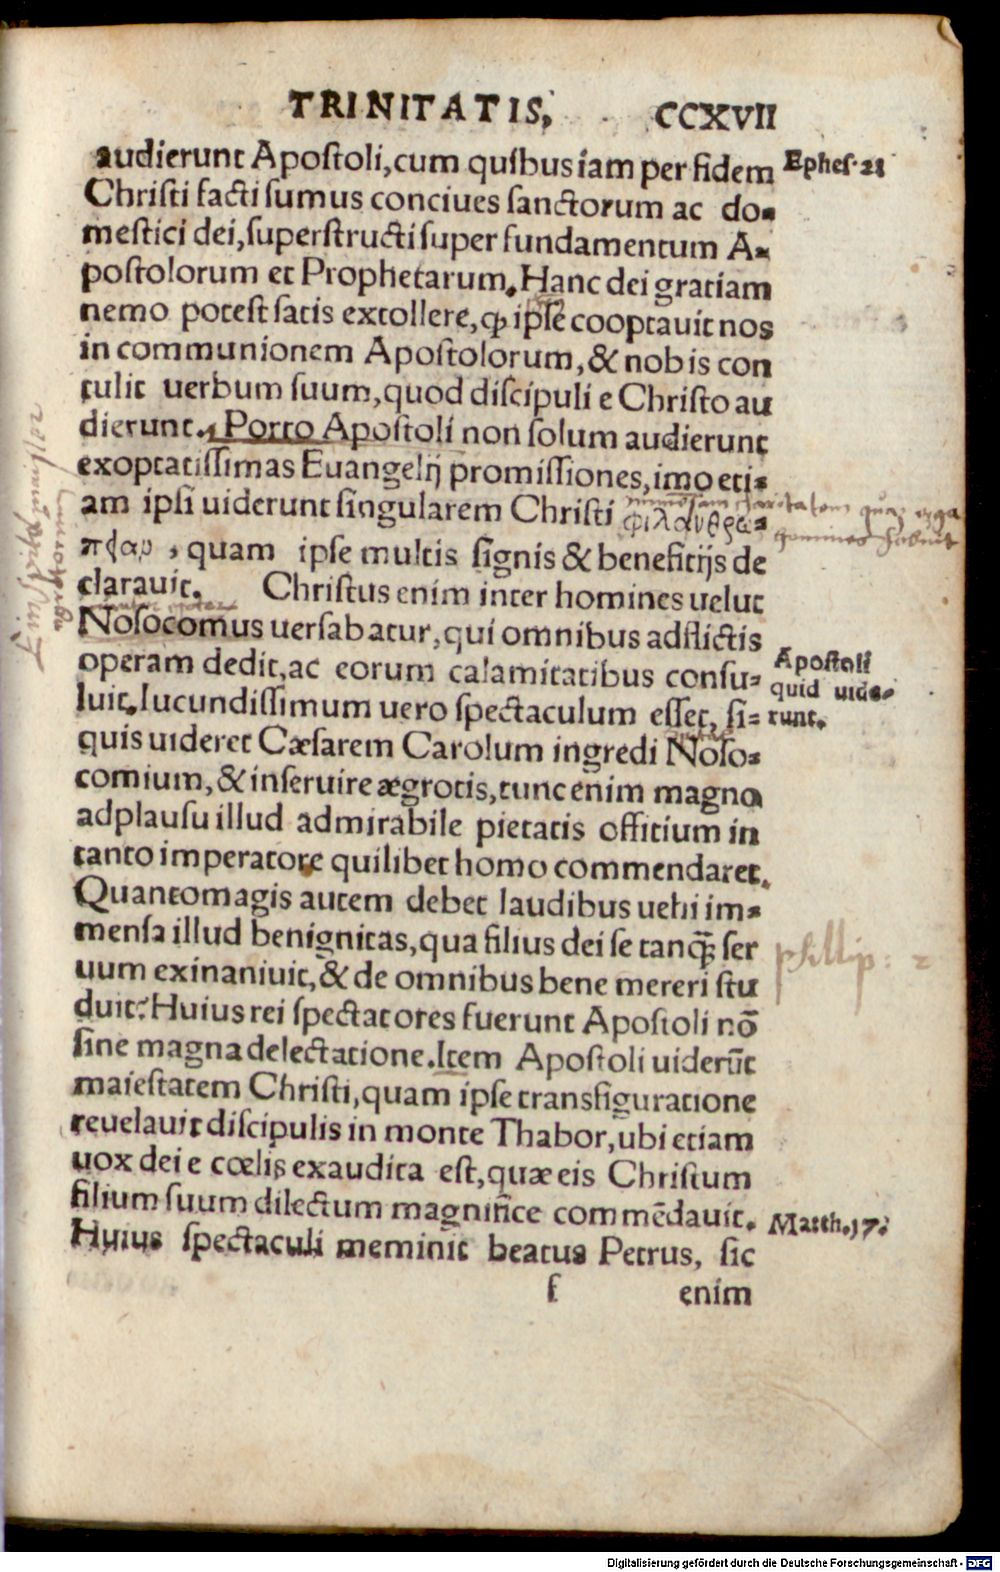 TRINITATIS, CCXVII
audierunt Apostoli, cum quibus iam per fidem
Ephes. 2
Christi facti sumus conciues sanctorum ac do-
mestici dei, superstructi super fundamentum A-
postolorum et Prophetarum. Hanc dei gratiam
nemo potest satis extollere, ꝙ ipse cooptauit nos
in communionem Apostolorum, & nobis con
tulit uerbum suum, quod discipuli e Christo au
dierunt. Porro Apostoli non solum audierunt
exoptatissimas Euangelij promissiones, imo eti-
am ipsi uiderunt singularem Christi φιλανθρω-
πίαν, quam ipse multis signis & beneficijs de
clarauit. Christus enim inter homines uelut
Nosocomus uersabatur, qui omnibus adflictis
operam dedit, ac eorum calamitatibus consu-
Apostoli
quid uide-
runt.
luit. Iucundissimum uero spectaculum esset, si-
quis uideret Cæsarem Carolum ingredi Noso-
comium, & inseruire ægrotis, tunc enim magno
adplausu illud admirabile pietatis offitium in
tanto imperatore quilibet homo commendaret.
Quantomagis autem debet laudibus uehi im-
mensa illud benignitas, qua filius dei se tanq̃ ser
phillip: 2
uum exinaniuit, & de omnibus bene mereri stu
duit? Huius rei spectatores fuerunt Apostoli nō
sine magna delectatione. Item Apostoli uiderūt
maiestatem Christi, quam ipse transfiguratione
reuelauit discipulis in monte Thabor, ubi etiam
uox dei e cœlis exaudita est, quæ eis Christum
filium suum dilectum magnifice commēdauit.
Matth. 17.
Huius spectaculi meminit beatus Petrus, sic
f enim
Digitalisierung gefördert durch die Deutsche Forschungsgemeinschaft - DFG